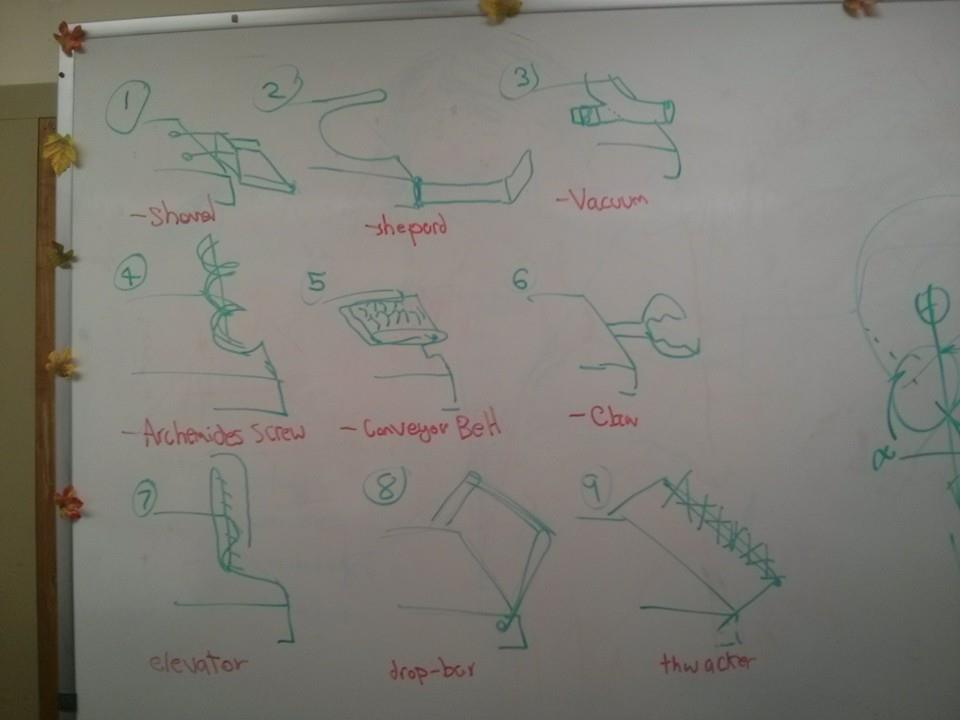 1 2 3
-Shovel
-shepard
-Vacuum
4 5 6
-Archemides Screw
-Conveyor Belt
-Claw
7 8 9
elevator
drop-bar
thwacker
α